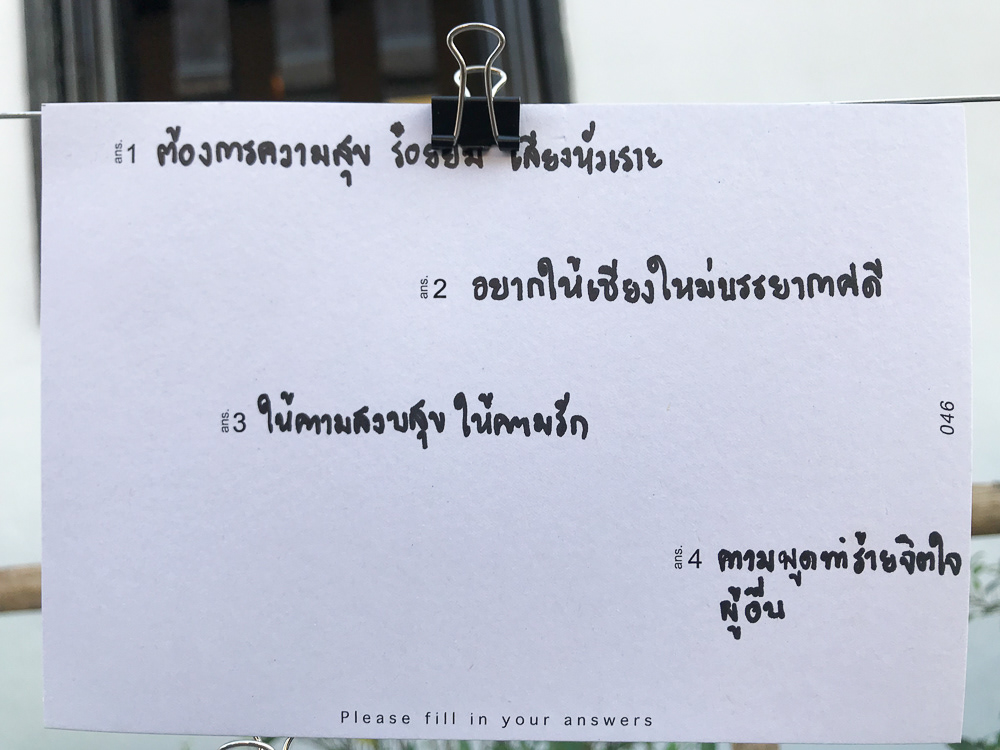 ans. 1 ต้องการความสุข รอยยิ้ม เสียงหัวเราะ
ans. 2 อยากให้เชียงใหม่บรรยากาศดี
ans. 3 ให้ความสงบสุข ให้ความรัก
046
ans. 4 ความพูดทำร้ายจิตใจ
ผู้อื่น
Please fill in your answers